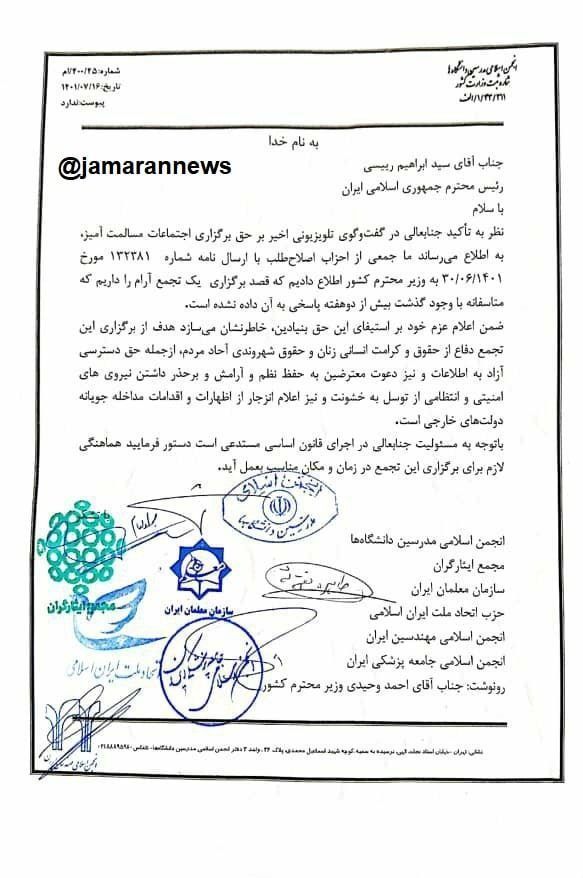 انجمن اسلامی مدرسین دانشگاه‌ها
شماره ثبت وزارت کشور
۱/۴۲/۳۱۱/الف
شماره: ۲۰۰/۲۵/ام
تاریخ: ۱۴۰۱/۰۷/۱۶
پیوست: ندارد
به نام خدا
@jamarannews
جناب آقای سید ابراهیم رییسی
رئیس محترم جمهوری اسلامی ایران
با سلام
نظر به تأکید جنابعالی در گفت‌وگوی تلویزیونی اخیر بر حق برگزاری اجتماعات مسالمت آمیز،
به اطلاع می‌رساند ما جمعی از احزاب اصلاح‌طلب با ارسال نامه شماره ۱۳۲۳۸۱ مورخ
۳۰/۰۶/۱۴۰۱ به وزیر محترم کشور اطلاع دادیم که قصد برگزاری یک تجمع آرام را داریم که
متاسفانه با وجود گذشت بیش از دوهفته پاسخی به آن داده نشده است.
ضمن اعلام عزم خود بر استیفای این حق بنیادین، خاطرنشان می‌سازد هدف از برگزاری این
تجمع دفاع از حقوق و کرامت انسانی زنان و حقوق شهروندی آحاد مردم، ازجمله حق دسترسی
آزاد به اطلاعات و نیز دعوت معترضین به حفظ نظم و آرامش و برحذر داشتن نیروی های
امنیتی و انتظامی از توسل به خشونت و نیز اعلام انزجار از اظهارات و اقدامات مداخله جویانه
دولت‌های خارجی است.
باتوجه به مسئولیت جنابعالی در اجرای قانون اساسی مستدعی است دستور فرمایید هماهنگی
لازم برای برگزاری این تجمع در زمان و مکان مناسب بعمل آید.
انجمن اسلامی
مدرسین دانشگاه‌ها
انجمن اسلامی مدرسین دانشگاه‌ها
مجمع ایثارگران
سازمان معلمان ایران
حزب اتحاد ملت ایران اسلامی
انجمن اسلامی مهندسین ایران
انجمن اسلامی جامعه پزشکی ایران
رونوشت: جناب آقای احمد وحیدی وزیر محترم کشور
مجمع ایثارگران
سازمان معلمان ایران
اتحاد ملت ایران اسلامی
انجمن اسلامی جامعه پزشکی ایران
انجمن اسلامی مهندسین ایران
نشانی: تهران - خیابان استاد نجات الهی، نرسیده به سمیه، کوچه شهید اسماعیل محمدی، پلاک ۲۶، واحد ۲ دفتر انجمن اسلامی مدرسین دانشگاه‌ها- تلفاکس: